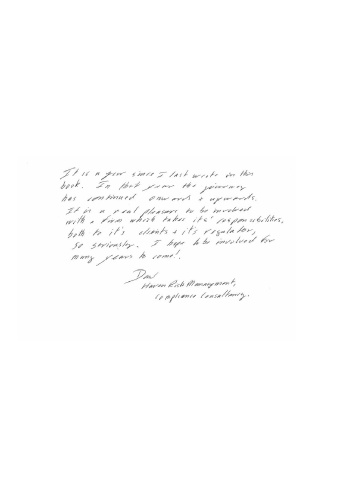 It is a year since I last wrote in this
book. In that year the journey
has continued onwards + upwards.
It is a real pleasure to be involved
with a firm which takes its' responsibilities,
both to it's clients + it's regulator,
so seriously. I hope to be involved for
many years to come!
Risk Management,
Compliance Consultancy.